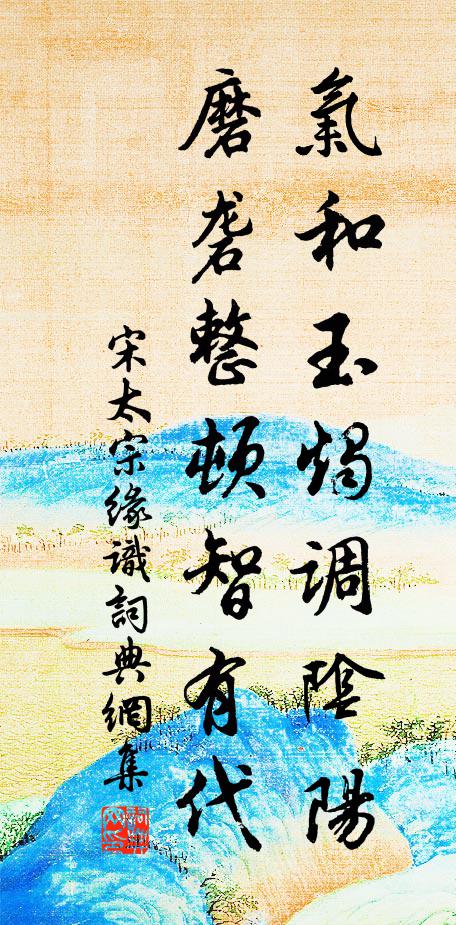 氣和玉燭調陰陽
磨礱整頓智有代
宋太宗緣識詞典網集